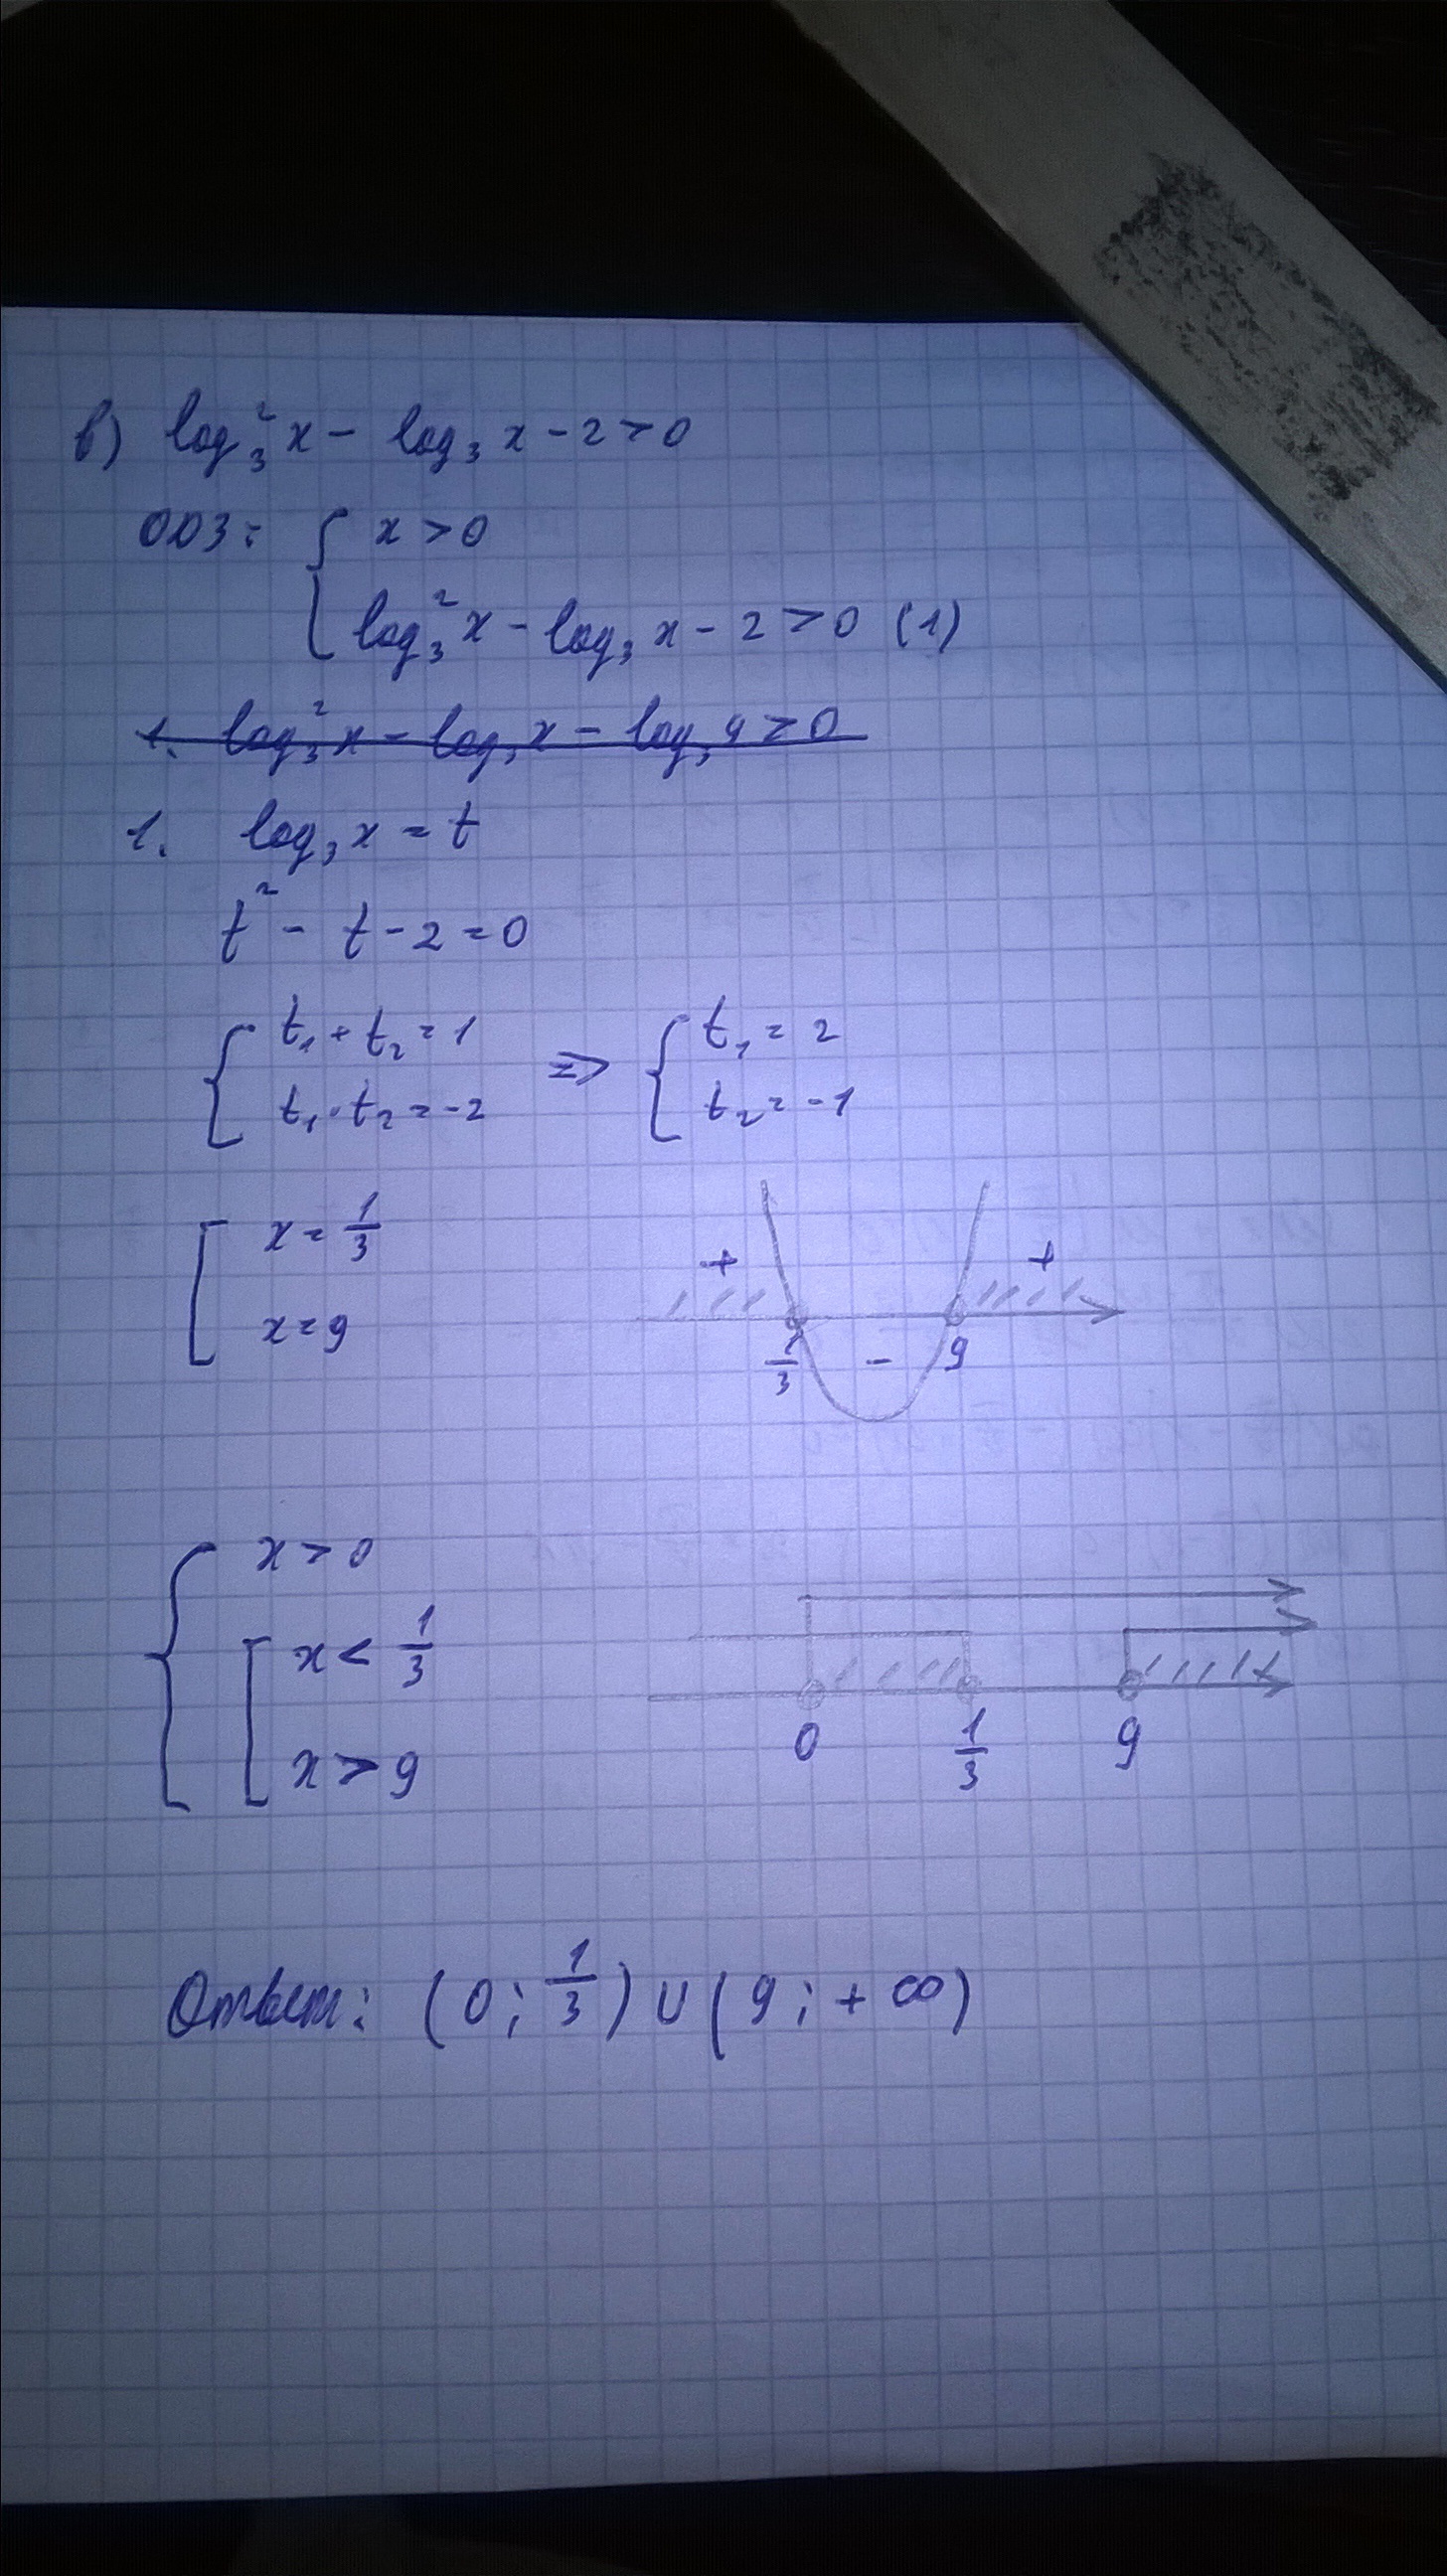 в) log₃²x - log₃x - 2 > 0
ОДЗ: { x > 0
{ log₃²x - log₃x - 2 > 0 (1)
1. log₃²x - log₃x - log₃9 > 0
1. log₃x = t
t² - t - 2 = 0
{ t₁ + t₂ = 1 => { t₁ = 2
{ t₁ · t₂ = -2 { t₂ = -1
[ x = 1/3
+ +
[ x = 9
1/3 - 9
{ x > 0
[ x < 1/3
[ x > 9
0 1/3 9
Ответ: (0; 1/3) ∪ (9; +∞)